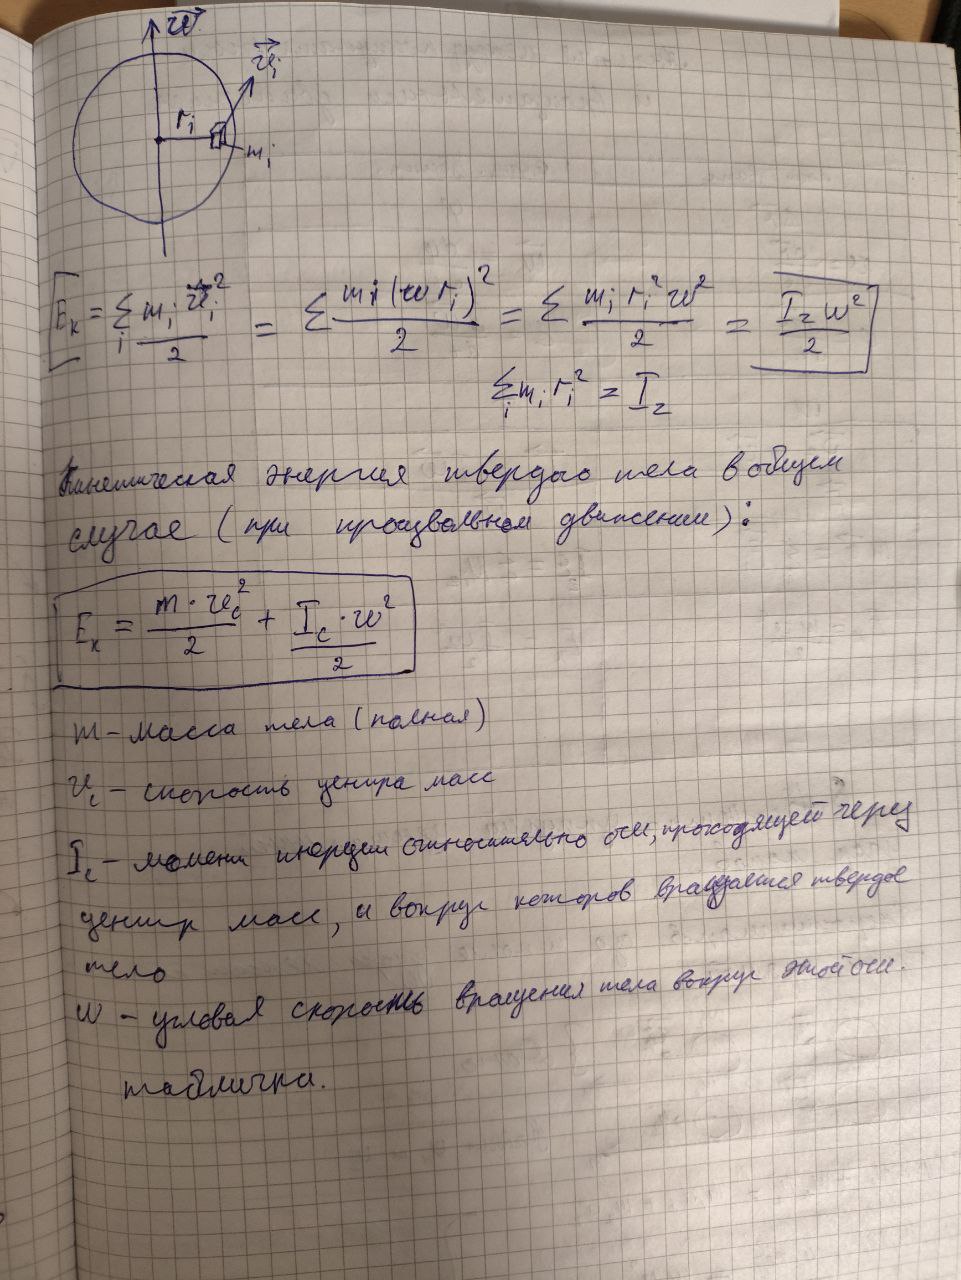 w⃗
v⃗ᵢ
rᵢ
mᵢ
Eₖ = Σᵢ mᵢ vᵢ² / 2 = Σ mᵢ(w rᵢ)² / 2 = Σ mᵢ rᵢ² w² / 2 = I_z w² / 2
Σᵢ mᵢ rᵢ² = I_z
Кинетическая энергия твердого тела в общем
случае (при произвольном движении):
Eₖ = m · v_c² / 2 + I_c · w² / 2
m – масса тела (полная)
v_c – скорость центра масс
I_c – момент инерции относительно оси, проходящей через
центр масс, и вокруг которов вращается твердое
тело
w – угловая скорость вращения тела вокруг этой оси.
табличка.